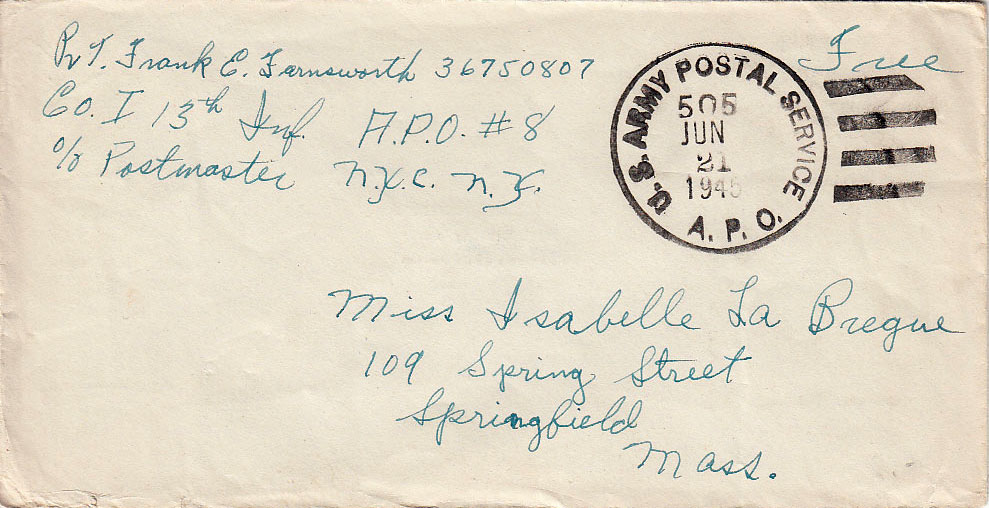 Pvt. Frank E. Farnsworth 36750807
Co. I 13th Inf. A.P.O. #8
c/o Postmaster N.Y.C. N.Y.
Free
U.S. ARMY POSTAL SERVICE
505
JUN
21
1945
A.P.O.
Miss Isabelle La Bregue
109 Spring Street
Springfield
Mass.